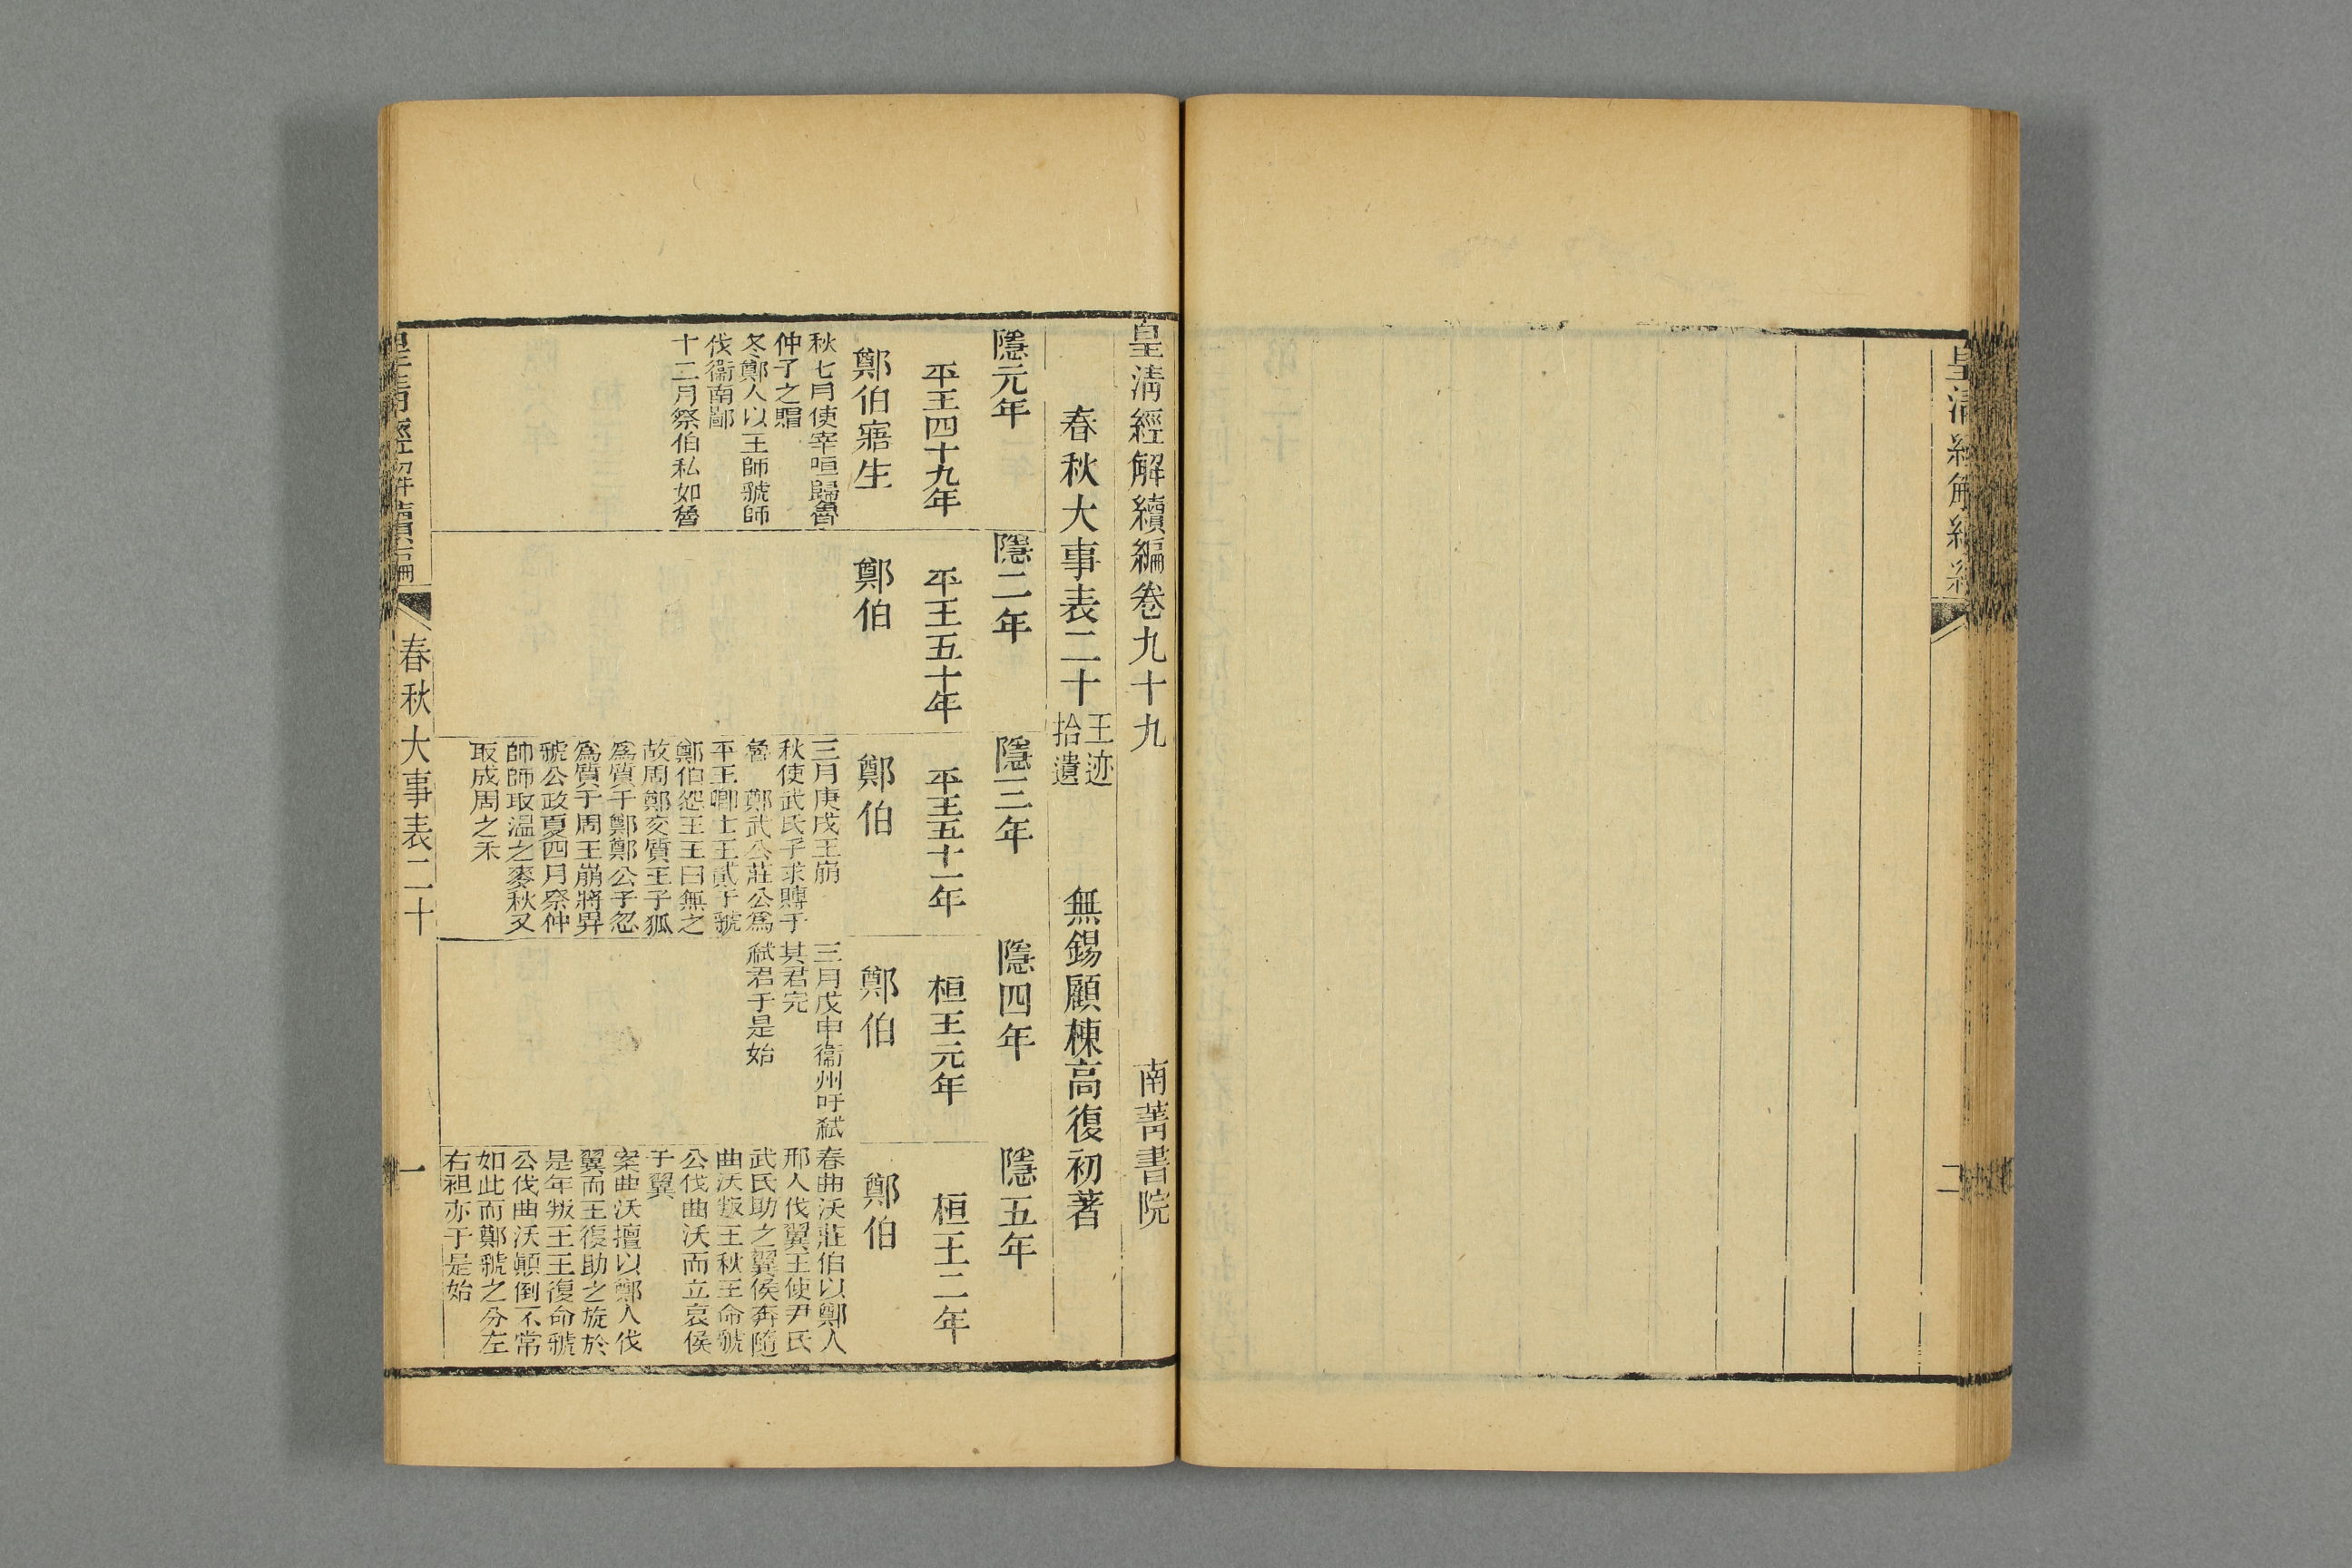 皇清經解續編
二
皇清經解續編卷九十九
南菁書院
春秋大事表二十
王迹
拾遺
無錫顧棟高復初著
隱元年
平王四十九年
鄭伯寤生
秋七月使宰咺歸魯
仲子之賵
冬鄭人以王師虢師
伐衞南鄙
十二月祭伯私如魯
隱二年
平王五十年
鄭伯
隱三年
平王五十一年
鄭伯
三月庚戌王崩
秋使武氏子求賻于
魯　鄭武公莊公爲
平王卿士王貳于虢
鄭伯怨王王曰無之
故周鄭交質王子狐
爲質于鄭鄭公子忽
爲質于周王崩將畀
虢公政夏四月祭仲
帥師取溫之麥秋又
取成周之禾
隱四年
桓王元年
鄭伯
三月戊申衞州吁弑
其君完
弑君于是始
隱五年
桓王二年
鄭伯
春曲沃莊伯以鄭人
邢人伐翼王使尹氏
武氏助之翼侯奔隨
曲沃叛王秋王命虢
公伐曲沃而立哀侯
于翼
案曲沃擅以鄭人伐
翼而王復助之旋於
是年叛王王復命虢
公伐曲沃顚倒不常
如此而鄭虢之分左
右袒亦于是始
皇清經解續編
春秋大事表二十
一